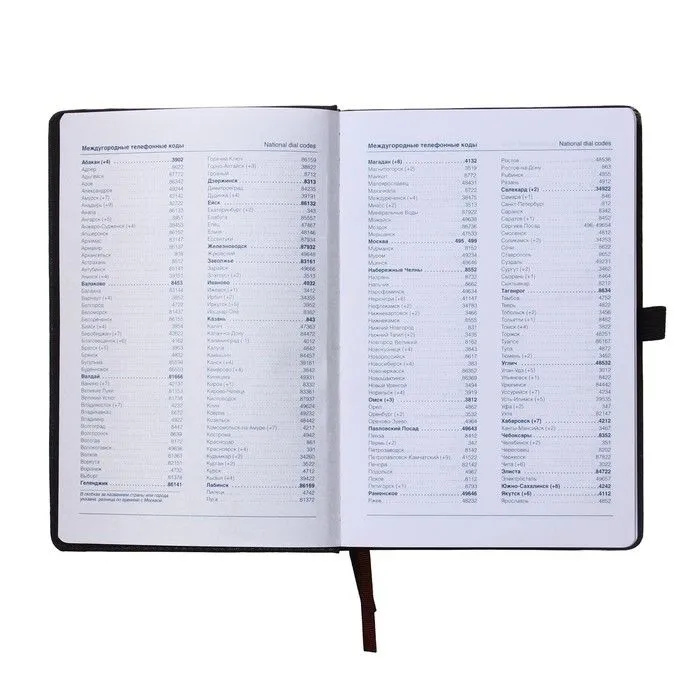 Междугородные телефонные коды National dial codes
Абакан (+4) 3902
Адлер 8622
Адыгейск 87772
Азов 86342
Александров 49244
Амурск (+7) 42142
Анадырь (+9) 42722
Анапа 86133
Ангарск (+5) 3951
Анжеро-Судженск (+4) 38453
Апшеронск 86152
Армавир 86137
Архангельск 818
Астрахань 8512
Ахтубинск 85141
Ачинск (+4) 39151
Балаково 8453
Балахна 83144
Барнаул (+4) 3852
Белгород 4722
Беломорск 81437
Белореченск 86155
Бийск (+4) 3854
Биробиджан (+7) 42622
Благовещенск (+6) 4162
Братск (+5) 3953
Брянск 4832
Бугульма 85594
Буденновск 86559
Валдай 81666
Ванино (+7) 42137
Великие Луки 81153
Великий Устюг 81738
Владивосток (+7) 4232
Владикавказ 8672
Владимир 4922
Волгоград 8442
Волгодонск 8639
Вологда 8172
Волоколамск 49636
Волхов 81363
Воркута 82151
Воронеж 4732
Выборг 81378
Геленджик 86141
В скобках за названием страны или города
указана разница по времени с Москвой.
Горячий Ключ 86159
Горно-Алтайск (+3) 38822
Грозный 8712
Дзержинск 8313
Димитровград 84235
Дудинка (+4) 39191
Ейск 86132
Екатеринбург (+2) 343
Елабуга 85557
Елец 47467
Ельня 48146
Ессентуки 87934
Железноводск 87932
Жуковский 49648
Заволжье 83161
Зарайск 49666
Златоуст (+2) 3513
Иваново 4932
Ижевск (+1) 3412
Ирбит (+2) 34355
Иркутск (+5) 3952
Йошкар-Ола 8362
Казань 843
Калач 47363
Калач-на-Дону 84472
Калининград (-1) 4012
Калуга 4842
Камышин 84457
Кемерово (+4) 3842
Кинешма 49331
Киров (+1) 8332
Кирово-Чепецк 83361
Кисловодск 87937
Клин 49624
Ковров 49232
Козельск 48442
Комсомольск-на-Амуре (+7) 4217
Кострома 4942
Краснодар 861
Красноярск (+4) 391
Кудымкар (+2) 34260
Курган (+2) 3522
Курск 4712
Кызыл (+4) 39422
Лабинск 86169
Липецк 4742
Луга 81372
Междугородные телефонные коды National dial codes
Магадан (+8) 4132
Магнитогорск (+2) 3519
Майкоп 8772
Малоярославец 48431
Махачкала 8722
Междуреченск (+4) 38475
Миасс (+2) 3513
Минеральные Воды 87922
Можайск 49638
Моздок 86736
Моршанск 47533
Москва 495, 499
Мурманск 8152
Муром 49234
Мценск 48646
Набережные Челны 8552
Назрань 8732
Нальчик 8662
Нарофоминск 49634
Нерюнгри (+6) 41147
Нефтекамск (+2) 34783
Нижневартовск (+2) 3466
Нижнекамск 8555
Нижний Новгород 831
Нижний Тагил (+2) 3435
Новгород Великий 8162
Новокузнецк (+4) 3843
Новороссийск 8617
Новосибирск (+4) 383
Новочеркасск 86352
Новошахтинск 86369
Новый Уренгой 3494
Норильск (+4) 3919
Омск (+3) 3812
Орел 4862
Оренбург (+2) 3532
Орехово-Зуево 4964
Павловский Посад 49643
Пенза 8412
Пермь (+2) 342
Петрозаводск 8142
Петропавловск-Камчатский (+9) 41522
Печера 82142
Подольск 4967
Псков 8112
Пятигорск (+1) 8793
Раменское 49646
Ржев 48232
Ростов 48536
Ростов-на-Дону 863
Рыбинск 4855
Рязань 4912
Салехард (+2) 34922
Самара (+1) 846
Санкт-Петербург 812
Саранск 8342
Саратов (+1) 8452
Сергиев Посад 496, 49654
Смоленск 4812
Соликамск (+2) 34253
Сочи 8622
Ставрополь 8652
Суздаль 49231
Сургут (+2) 3462
Сызрань (+1) 8464
Сыктывкар 8212
Таганрог 8634
Тамбов 4752
Тверь 4822
Тобольск (+2) 3456
Тольятти (+1) 8482
Томск (+4) 3822
Торжок 48251
Туапсе 86167
Тула 4872
Тюмень (+2) 3452
Углич 48532
Улан-Удэ (+5) 3012
Ульяновск (+1) 8422
Урюпинск 84442
Уссурийск (+7) 4234
Усть-Илимск (+5) 39535
Уфа (+2) 347
Ухта 82147
Хабаровск (+7) 4212
Ханты-Мансийск (+2) 3467
Чебоксары 8352
Челябинск (+2) 351
Череповец 8202
Черкесск 87822
Чита (+6) 3022
Элиста 84722
Электросталь 49657
Южно-Сахалинск (+8) 4242
Якутск (+6) 4112
Ярославль 4852